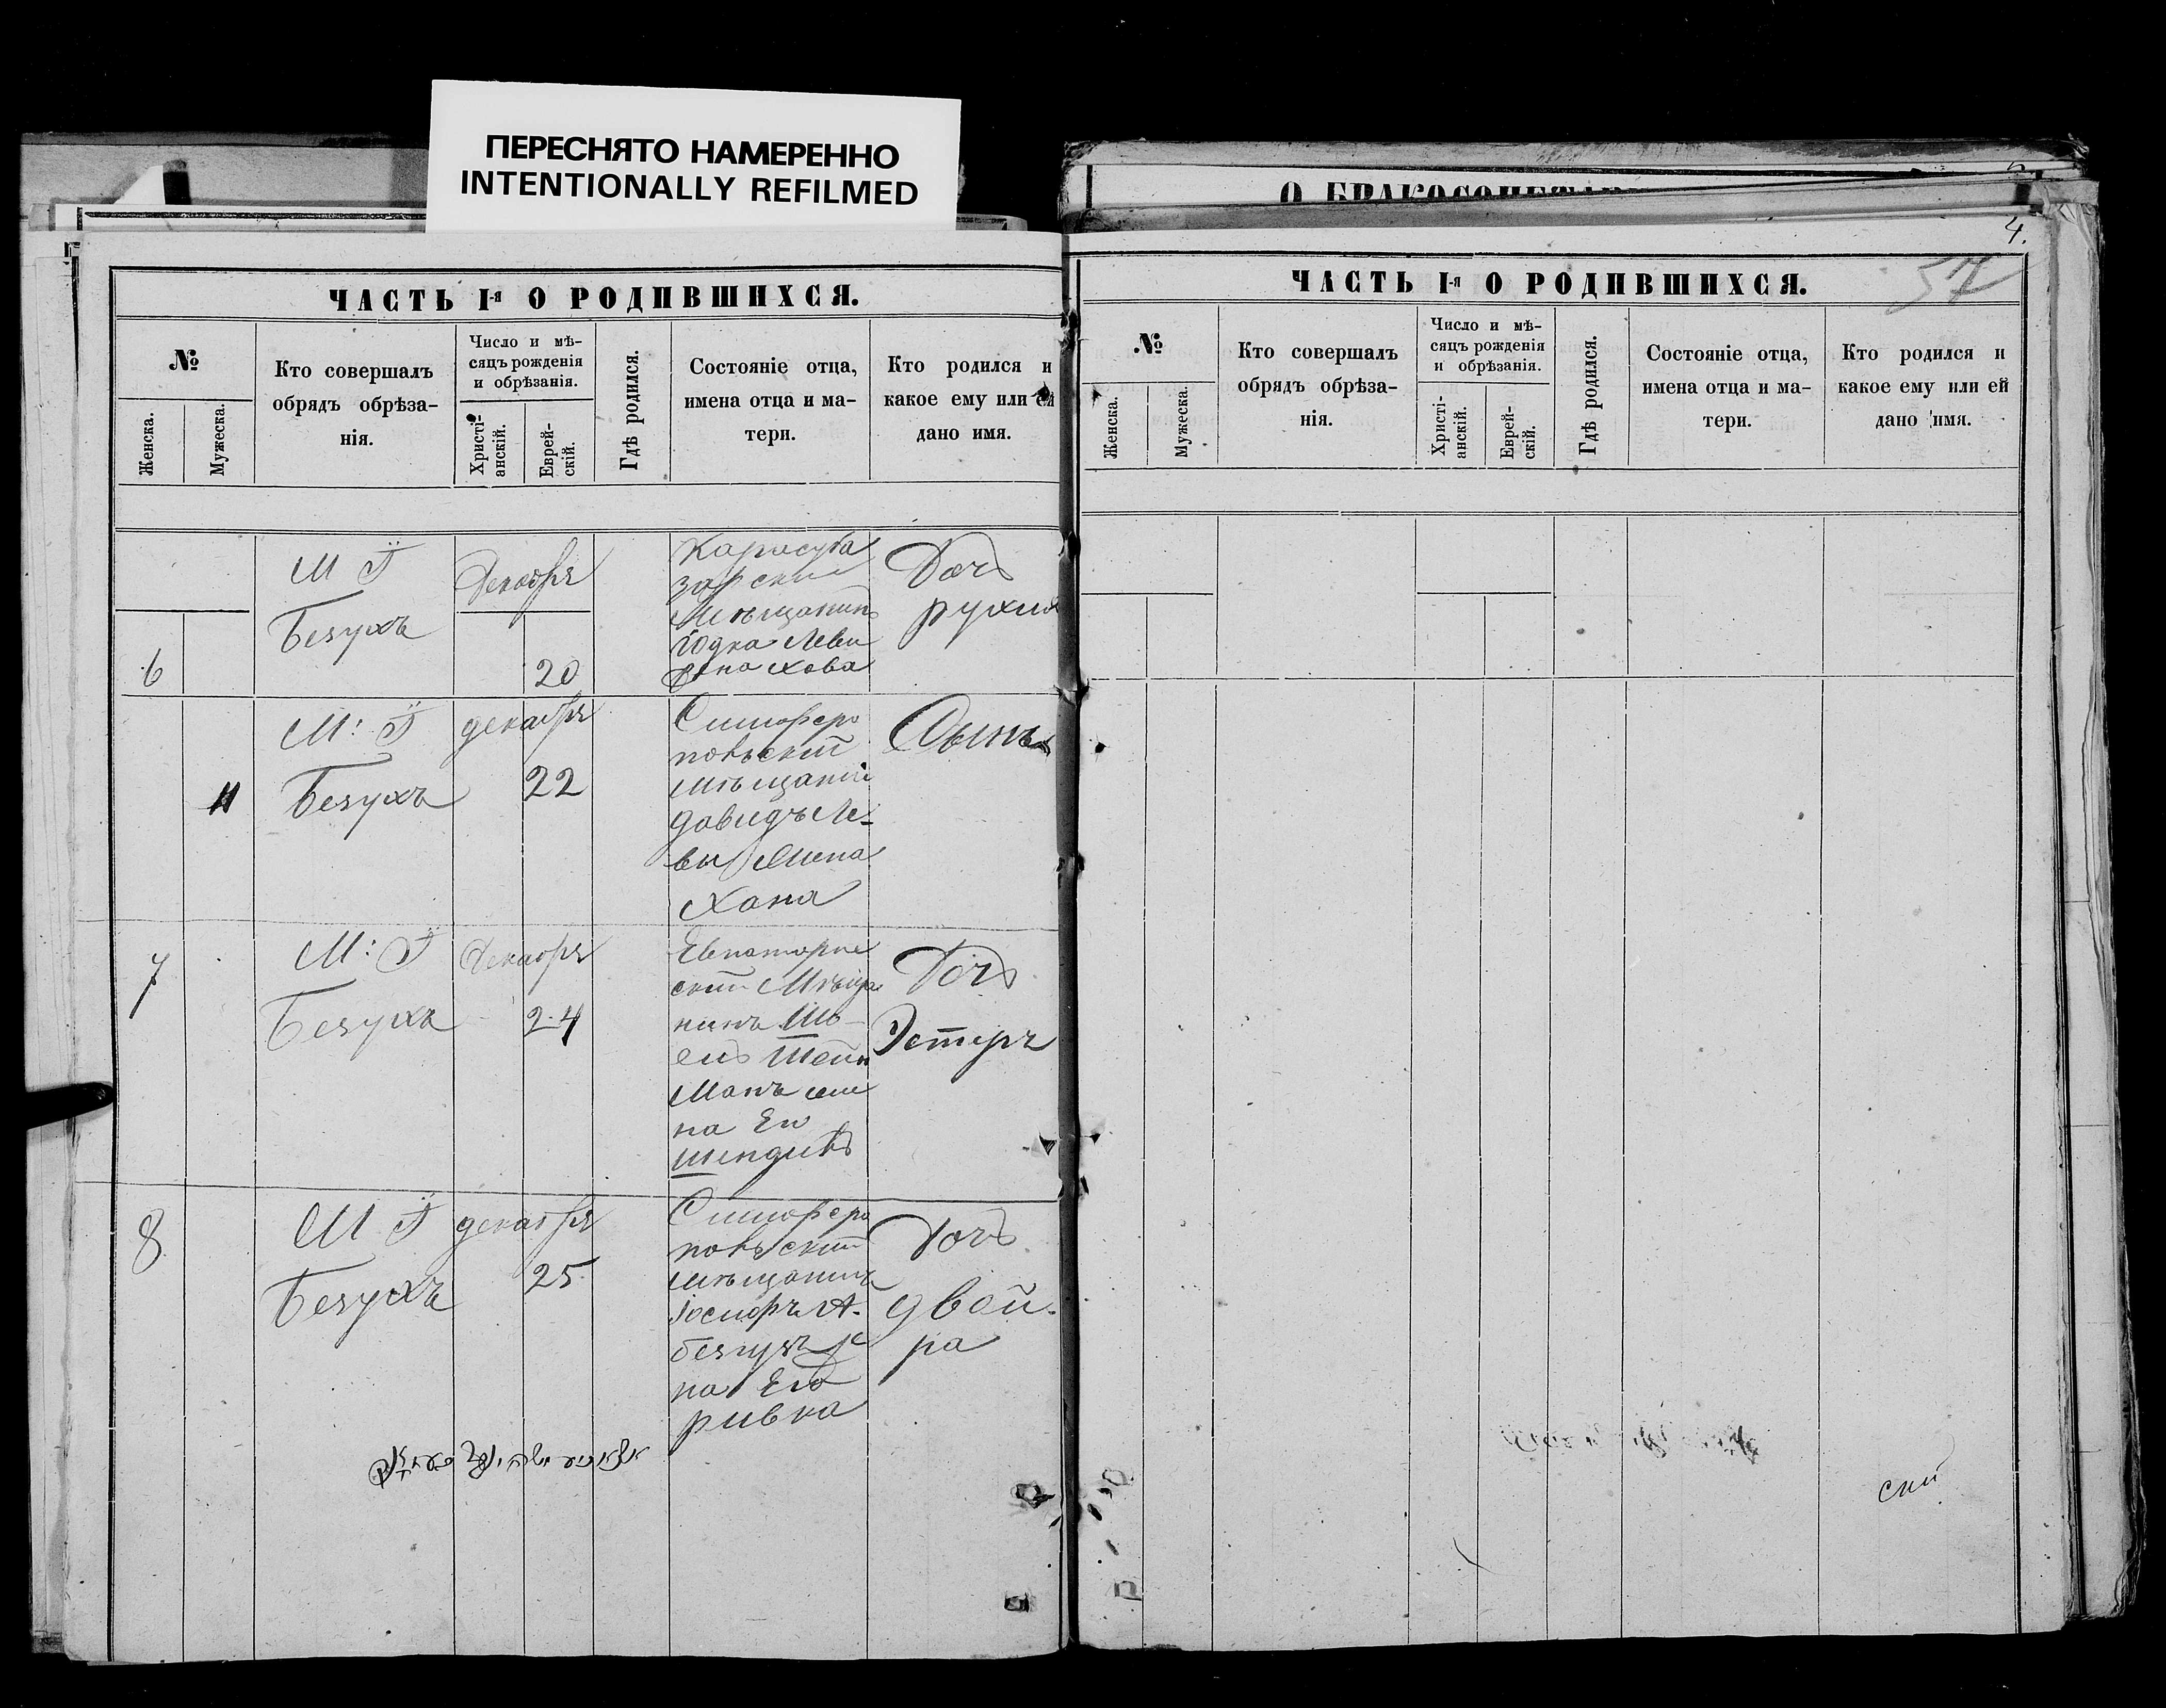 ПЕРЕСНЯТО НАМЕРЕННО
INTENTIONALLY REFILMED
4.
ЧАСТЬ I-я О РОДИВШИХСЯ.
№
Женска.
Мужеска.
Кто совершалъ
обрядъ обрѣза-
нія.
Число и мѣ-
сяцъ рожденія
и обрѣзанія.
Христі-
анскій.
Еврей-
скій.
Гдѣ родился.
Состояніе отца,
имена отца и ма-
тери.
Кто родился и
какое ему или ей
дано имя.
6
М Г
Безухъ
Декабря
20
Карасуба
зарский
Мѣщанинъ
Юдка Леви
Дочь
рухля
М: Г
Безухъ
декабря
22
Симферо
польский
мѣщанин
давидъ Ле-
вы
Хана
Сынъ
7
М: Г
Безухъ
Декабря
24
Евпаторие
ский Мѣща
нинъ
Шейн
Манъ
на Ео
Дочь
Эстеръ
8
М Г
Безухъ
декабря
25
Симферо
польский
мѣщанинъ
Іосифъ А.
Безухъ
на Его
ривка
Дочь
двой-
ра
ЧАСТЬ I-я О РОДИВШИХСЯ.
57
№
Женска.
Мужеска.
Кто совершалъ
обрядъ обрѣза-
нія.
Число и мѣ-
сяцъ рожденія
и обрѣзанія.
Христі-
анскій.
Еврей-
скій.
Гдѣ родился.
Состояніе отца,
имена отца и ма-
тери.
Кто родился и
какое ему или ей
дано имя.
ский